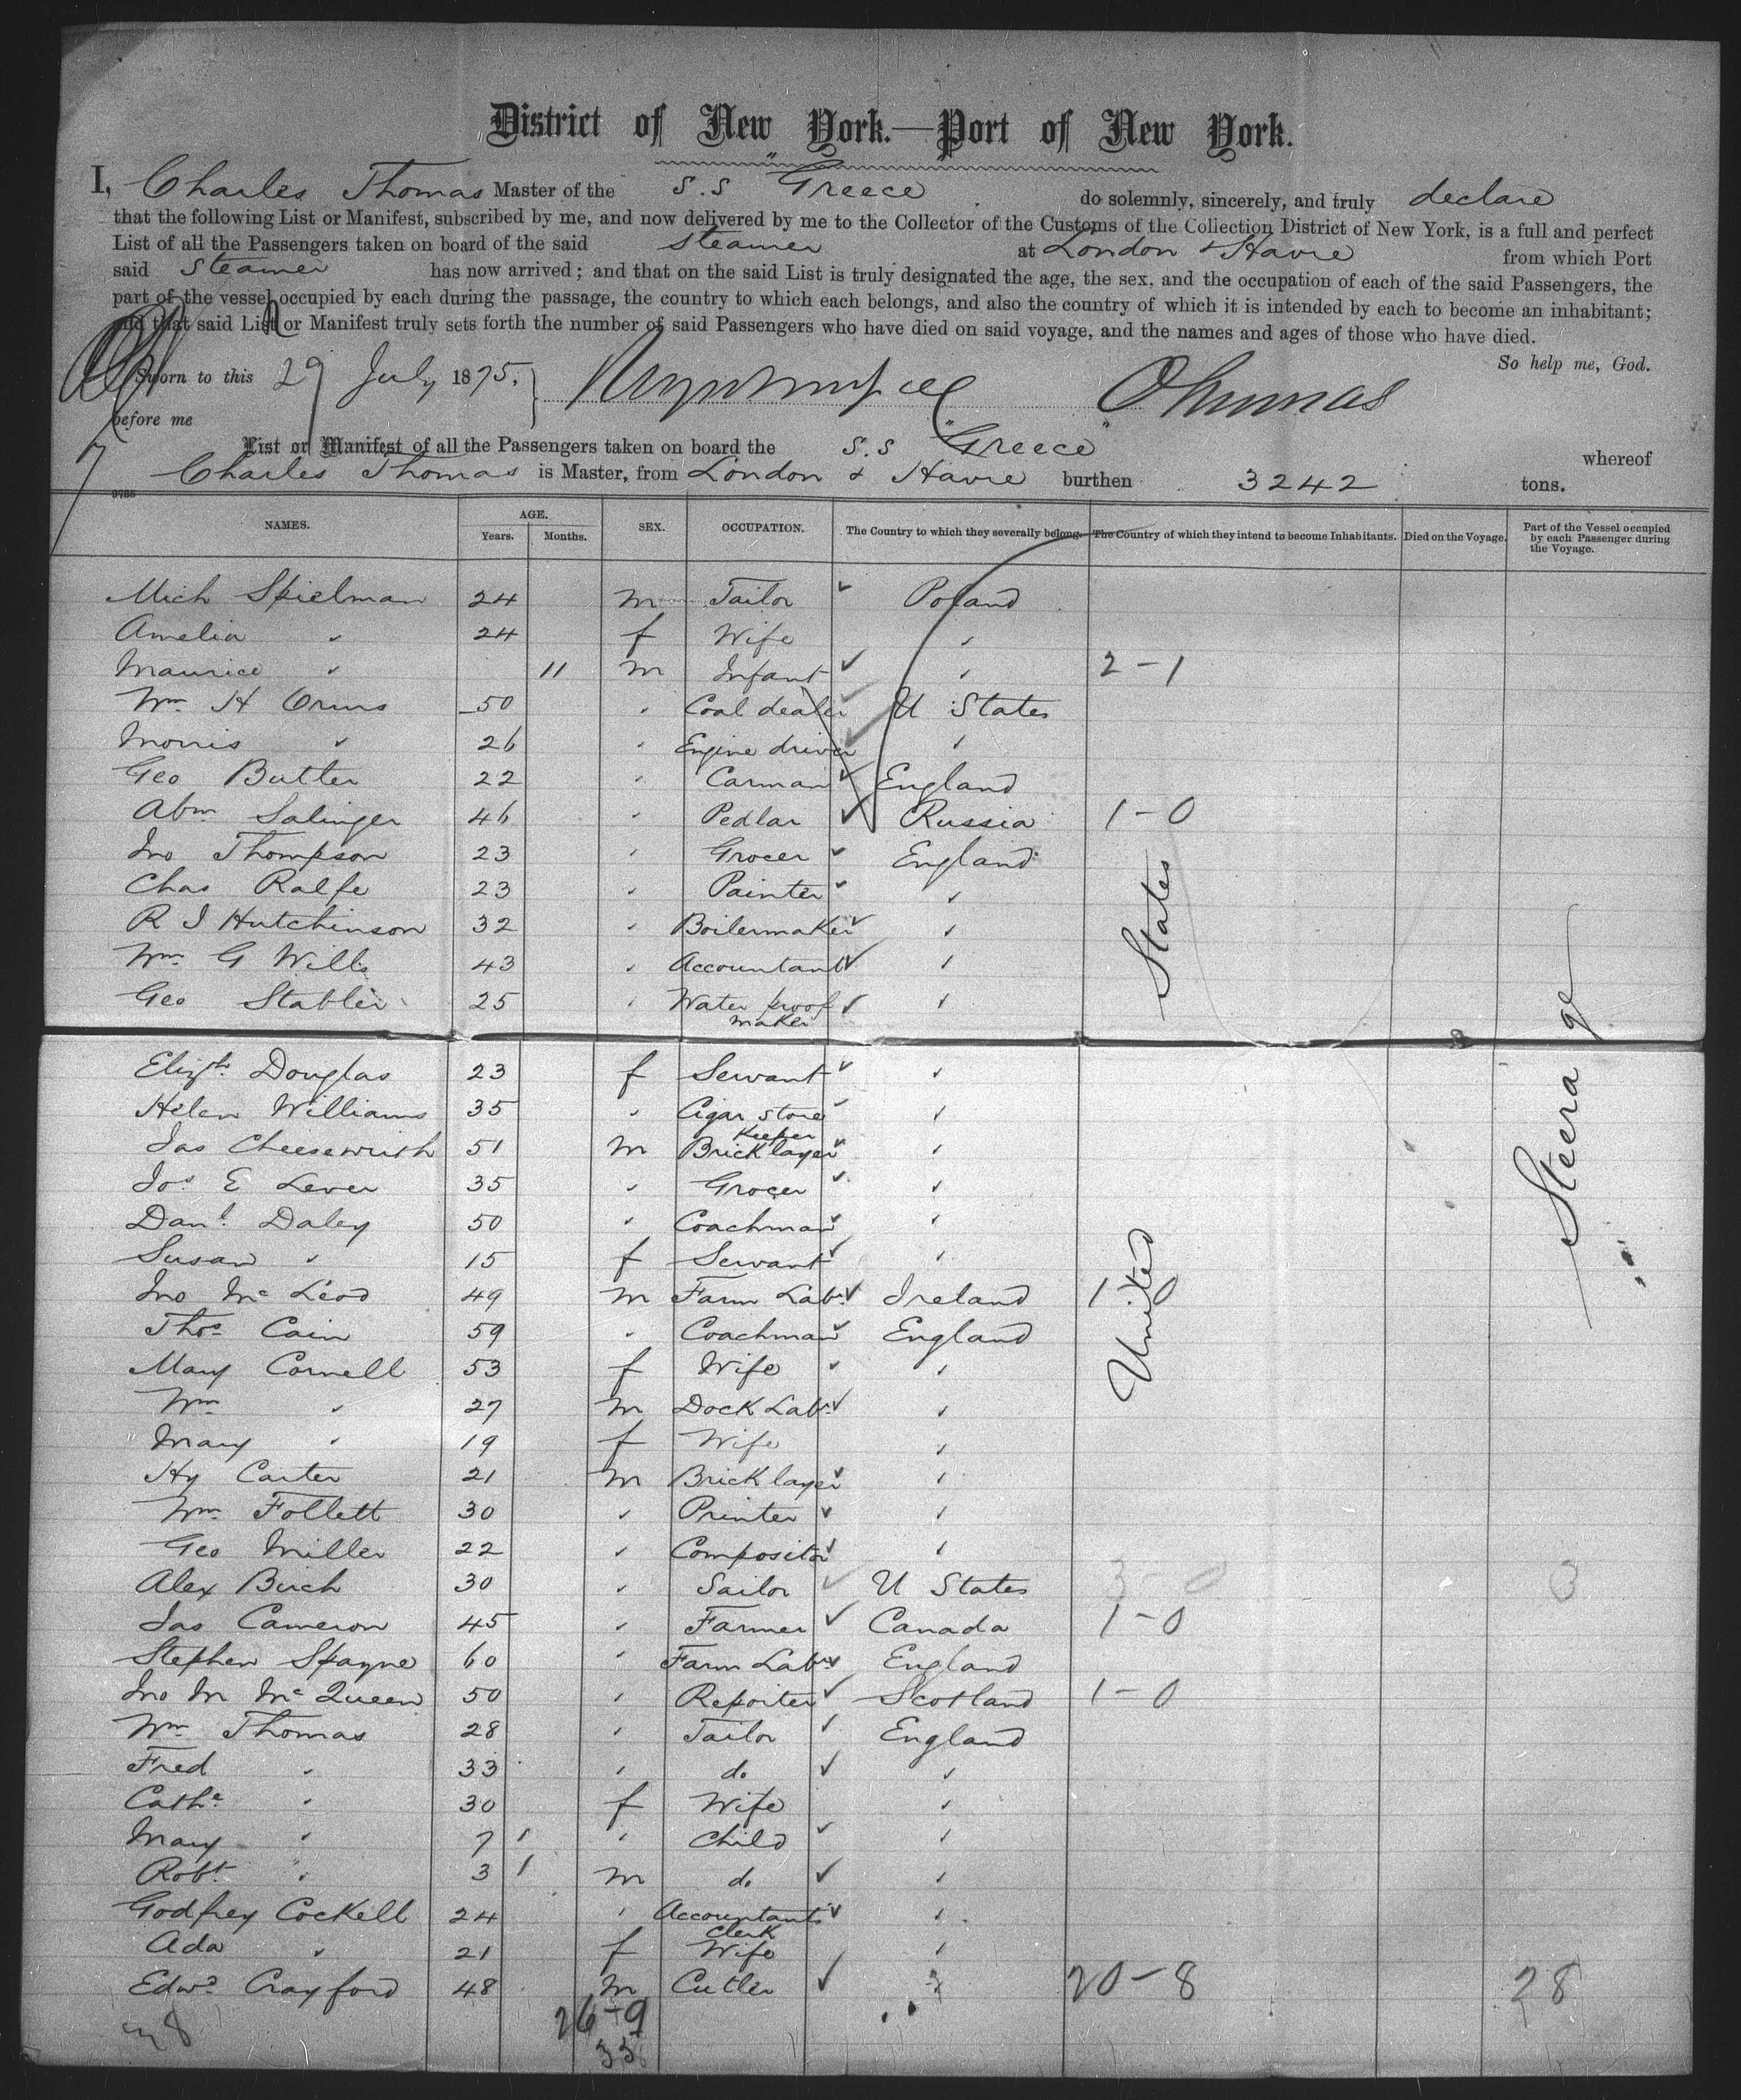 District of New York.—Port of New York.
I, Charles Thomas Master of the S.S "Greece" do solemnly, sincerely, and truly declare
that the following List or Manifest, subscribed by me, and now delivered by me to the Collector of the Customs of the Collection District of New York, is a full and perfect
List of all the Passengers taken on board of the said Steamer at London & Havre from which Port
said Steamer has now arrived; and that on the said List is truly designated the age, the sex, and the occupation of each of the said Passengers, the
part of the vessel occupied by each during the passage, the country to which each belongs, and also the country of which it is intended by each to become an inhabitant;
and that said List or Manifest truly sets forth the number of said Passengers who have died on said voyage, and the names and ages of those who have died.
So help me, God.
Sworn to this 29 July 1875. CThomas
before me
List or Manifest of all the Passengers taken on board the S.S "Greece" whereof
Charles Thomas is Master, from London & Havre burthen 3242 tons.
NAMES. AGE. Years. Months. SEX. OCCUPATION. The Country to which they severally belong. The Country of which they intend to become Inhabitants. Died on the Voyage. Part of the Vessel occupied by each Passenger during the Voyage.
Mich Spielman 24 m Tailor Poland
Amelia " 24 f Wife "
Maurice " 11 m Infant " 2-1
Wm H Orms 50 " Coal dealer U States
Morris " 26 " Engine driver "
Geo Butter 22 " Carman England
Abm Salinger 46 " Pedlar Russia 1-0
Jno Thompson 23 " Grocer England
Chas Ralfe 23 " Painter "
R J Hutchinson 32 " Boilermaker "
Wm G Wills 43 " Accountant "
Geo Stabler 25 " Water proof maker "
Elizth Douglas 23 f Servant "
Helen Williams 35 " Cigar store Keeper "
Jas Cheesewrith 51 m Bricklayer "
Jos E Lever 35 " Grocer "
Danl Daley 50 " Coachman "
Susan " 15 f Servant "
Jno Mc Leod 49 m Farm Labr Ireland 1-0
Thos Cain 59 " Coachman England
Mary Cornell 53 f Wife "
Wm " 27 m Dock Labr "
Mary " 19 f Wife "
Hy Carter 21 m Bricklayer "
Wm Follett 30 " Printer "
Geo Miller 22 " Compositor "
Alex Birch 30 " Sailor U States 3 0 3
Jas Cameron 45 " Farmer Canada 1-0
Stephen Spayne 60 " Farm Labr England
Jno M Mc Queen 50 " Reporter Scotland 1-0
Wm Thomas 28 " Tailor England
Fred " 33 " do "
Cathe " 30 f Wife "
Mary " 7 " Child "
Robt " 3 m do "
Godfrey Cockell 24 " Accountants Clerk "
Ada " 21 f Wife "
Edwd Crayford 48 m Cutler " 20-8 28
26-9
35
United States
Steerage